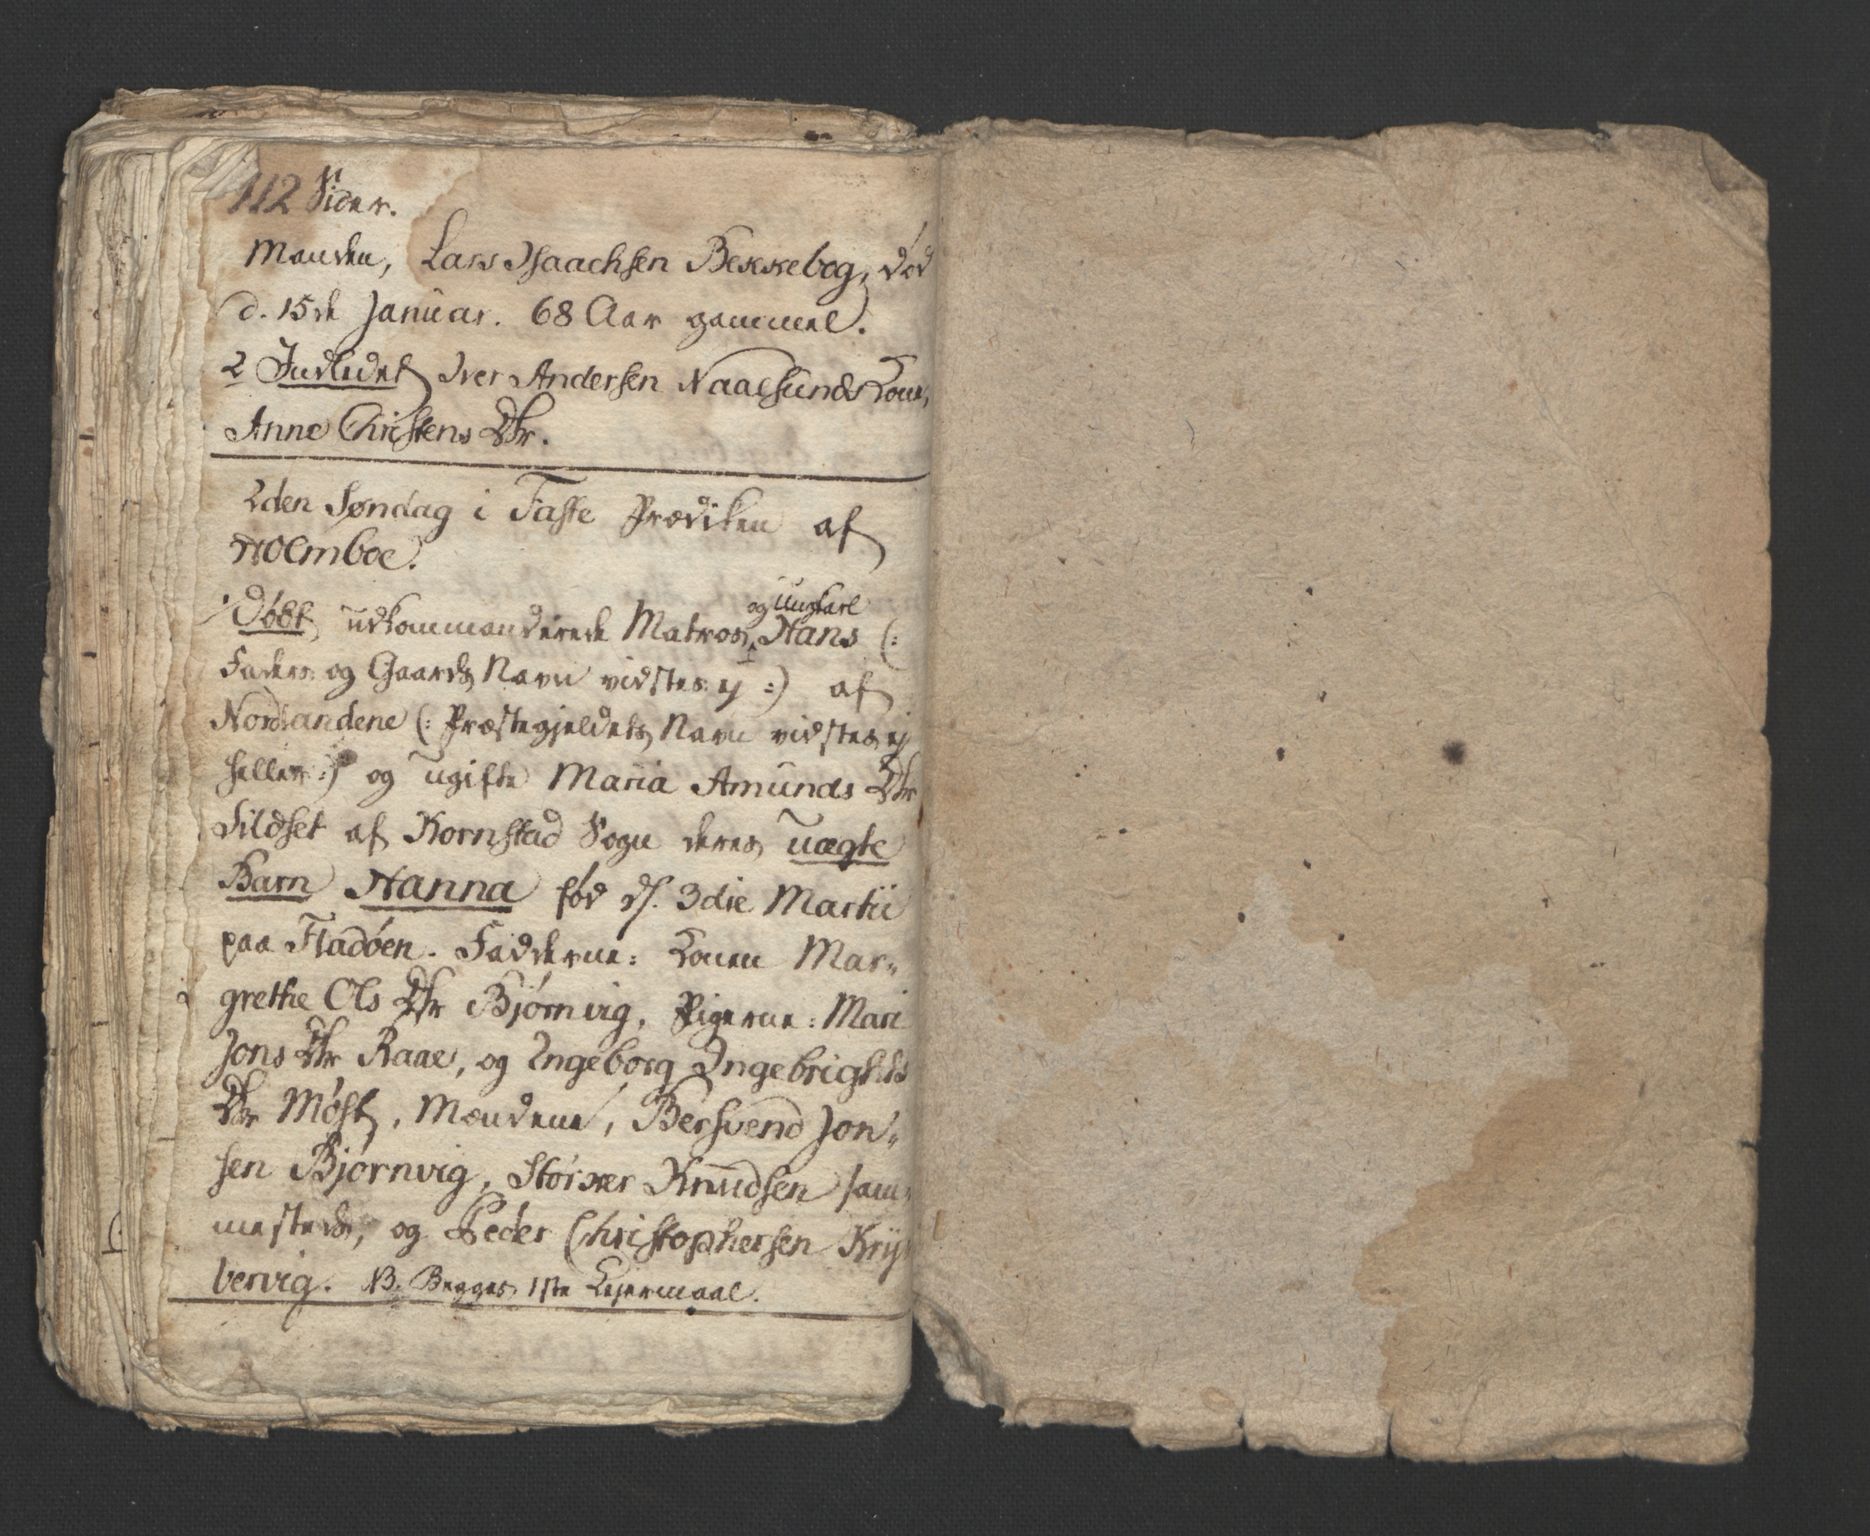 112 Sider.
Manden, Lars Isaachsen Bekkebog, død
d. 15de Januar. 68 Aar gammel.
2 Indledet Iver Andersen Naalsunds Kone,
Anne Christens Dtr.
2den Søndag i Faste Prædiken af
Holmboe.
Døbt udkommanderede Matros og Ungkarl Hans (:
Faders og Gaards Navn vidstes ej :) af
Nordlandene (: Præstegjeldets Navn vidstes ej
heller :) og ugifte Maria Amunds Dtr
Sildset af Kornstad Sogn deres uægte
Barn Hanna fød d. 3die Martii
paa Fladøen. Fadderne: Konen Mar-
grethe Ols Dtr Bjørnvig, Pigerne: Mari
Jons Dtr Raae, og Ingeborg Ingebrigts
Dtr Møst, Mændene, Bersvend Jon-
sen Bjørnvig, Størker Knudsen sam-
mesteds, og Peder Christophersen Kryb
bervig. NB. Begges 1ste Leiermaal.